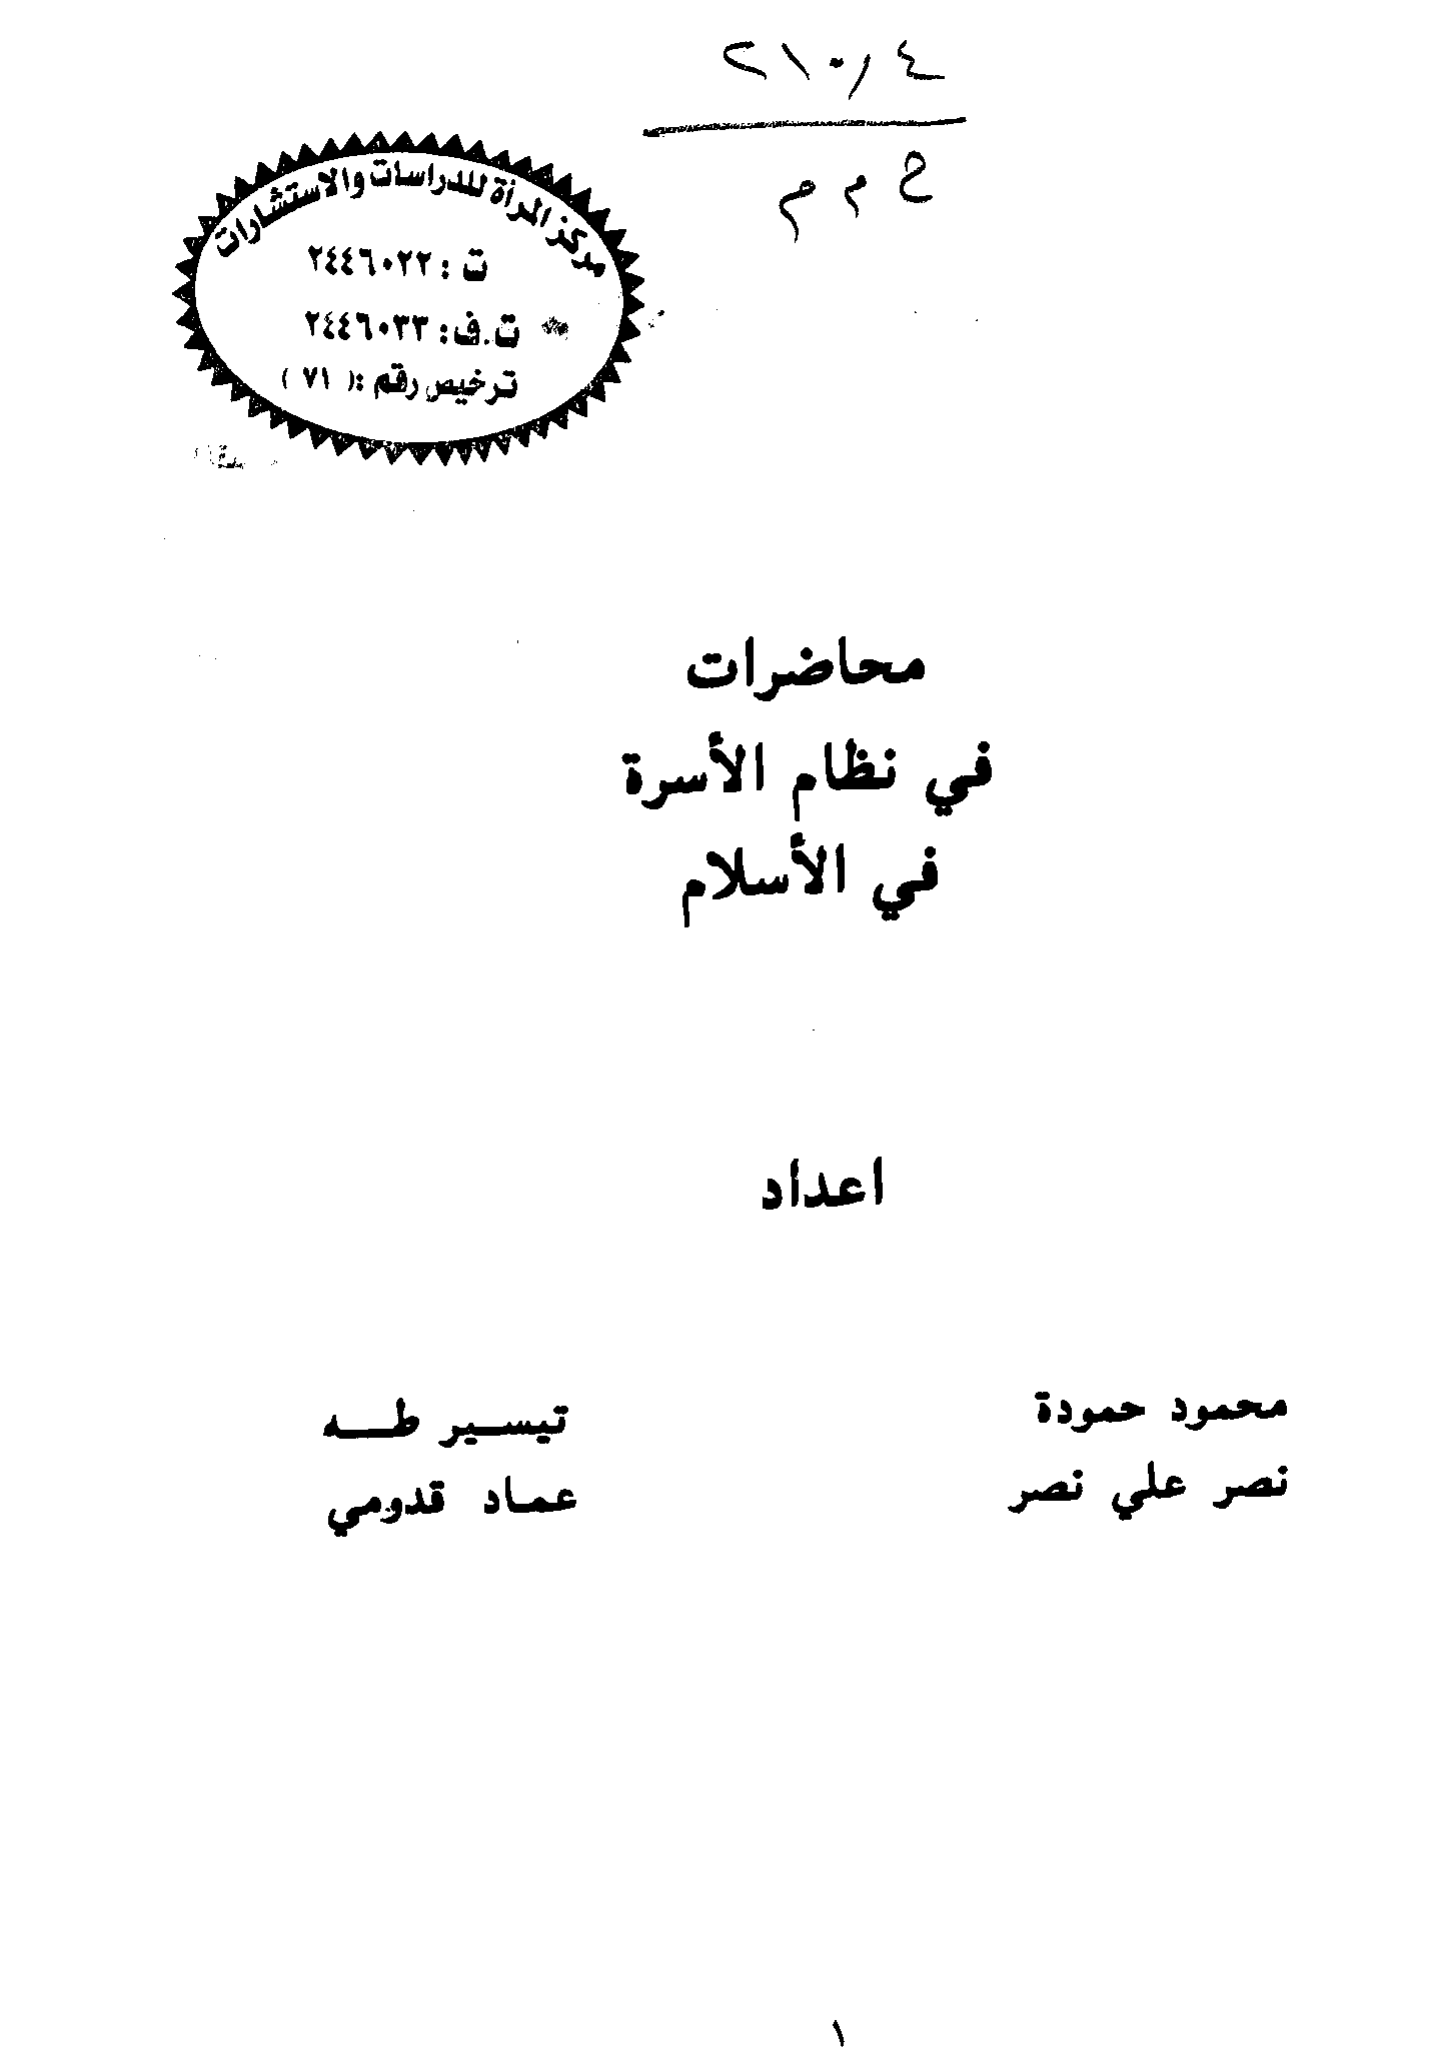 ٢١٠,٤
ح م م
مركز المرأة للدراسات والاستشارات
ت : ٢٤٤٦٠٢٢
ت.ف: ٢٤٤٦٠٣٣
ترخيص رقم :( ٧١ )
محاضرات
في نظام الأسرة
في الأسلام
اعداد
محمود حمودة
تيسير طه
نصر علي نصر
عماد قدومي
١